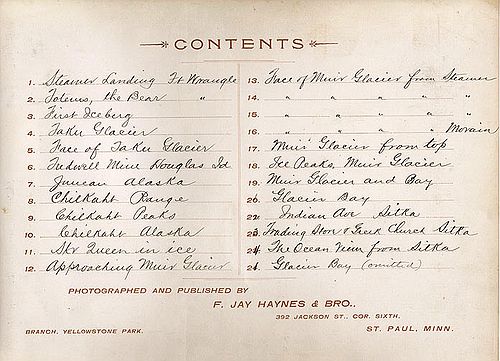 CONTENTS
1. Steamer Landing Ft Wrangle
2. Totems, the Bear "
3. First Iceberg
4. Taku Glacier
5. Face of Taku Glacier
6. Tredwell Mine Douglas Id
7. Juneau Alaska
8. Chilkaht Range
9. Chilkaht Peaks
10. Chilkaht Alaska
11. Str Queen in ice
12. Approaching Muir Glacier
13. Face of Muir Glacier from Steamer
14. " " " " "
15. " " " " "
16. " " " " Morain
17. Muir Glacier from top
18. Ice Peaks, Muir Glacier
19. Muir Glacier and Bay
20. Glacier Bay
22. Indian Ave Sitka
23. Trading Store & Greek Church Sitka
24. The Ocean View from Sitka
21. Glacier Bay (omitted)
PHOTOGRAPHED AND PUBLISHED BY
F. JAY HAYNES & BRO.,
392 JACKSON ST., COR. SIXTH,
BRANCH, YELLOWSTONE PARK. ST. PAUL, MINN.